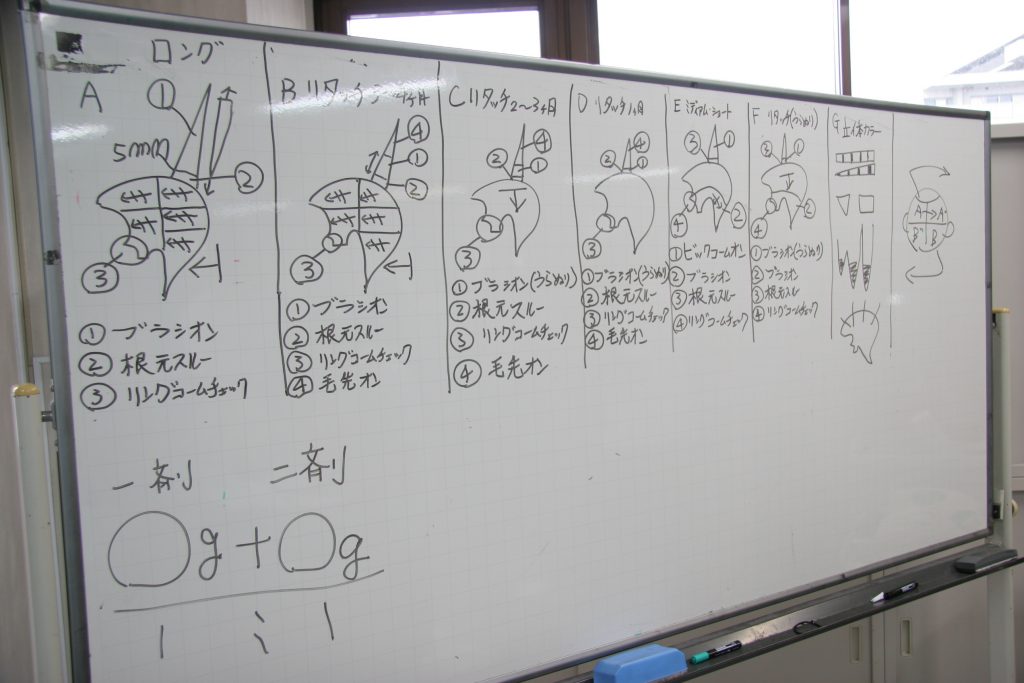 ロング
A
①
5mm
②
③
① ブラシオン
② 根元スルー
③ リングコームチェック
B リタッチ 4ヶ月
④
①
②
③
① ブラシオン
② 根元スルー
③ リングコームチェック
④ 毛先オン
C リタッチ2〜3ヶ月
④
②
①
③
① ブラシオン(うらぬり)
② 根元スルー
③ リングコームチェック
④ 毛先オン
D リタッチ1ヶ月
④
②
①
③
① ブラシオン(うらぬり)
② 根元スルー
③ リングコームチェック
④ 毛先オン
E ミディアム・ショート
③
①
④
②
① ビックコームオン
② ブラシオン
③ 根元スルー
④ リングコームチェック
F リタッチ(うらぬり)
③
①
②
④
① ブラシオン(うらぬり)
② ブラシオン
③ 根元スルー
④ リングコームチェック
G 立体カラー
A → A'
B" B
一剤 二剤
○g+○g
1 : 1